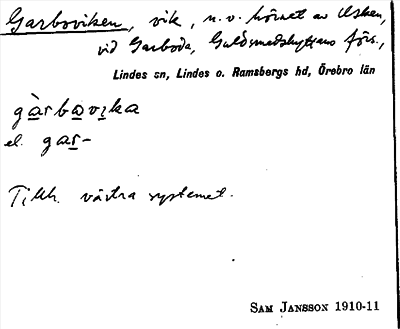 Garboviken, vik, n.v. hörnet av Usken,
vid Garboda, Guldsmedshyttans förs.,
Lindes sn, Lindes o. Ramsbergs hd, Örebro län
gàrbovika
el. gar-
Tillh. västra systemet.
SAM JANSSON 1910-11